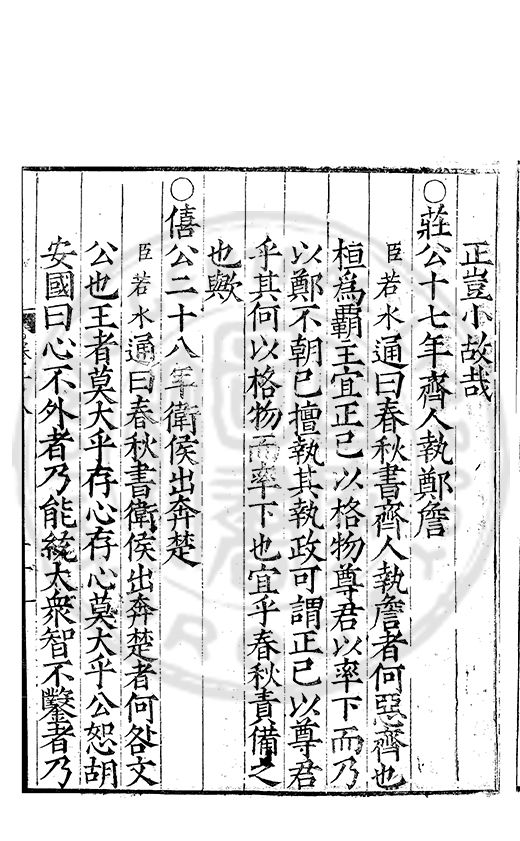 正豈小故哉
○莊公十七年齊人執鄭詹
臣若水通曰春秋書齊人執詹者何惡齊也
桓為覇主宜正己以格物尊君以率下而乃
以鄭不朝已擅執其執政可謂正己以尊君
乎其何以格物而率下也宜乎春秋責備之
也歟
○僖公二十八年衛侯出奔楚
臣若水通曰春秋書衛侯出奔楚者何咎文
公也王者莫大乎存心存心莫大乎公恕胡
安國曰心不外者乃能統大衆智不鑿者乃